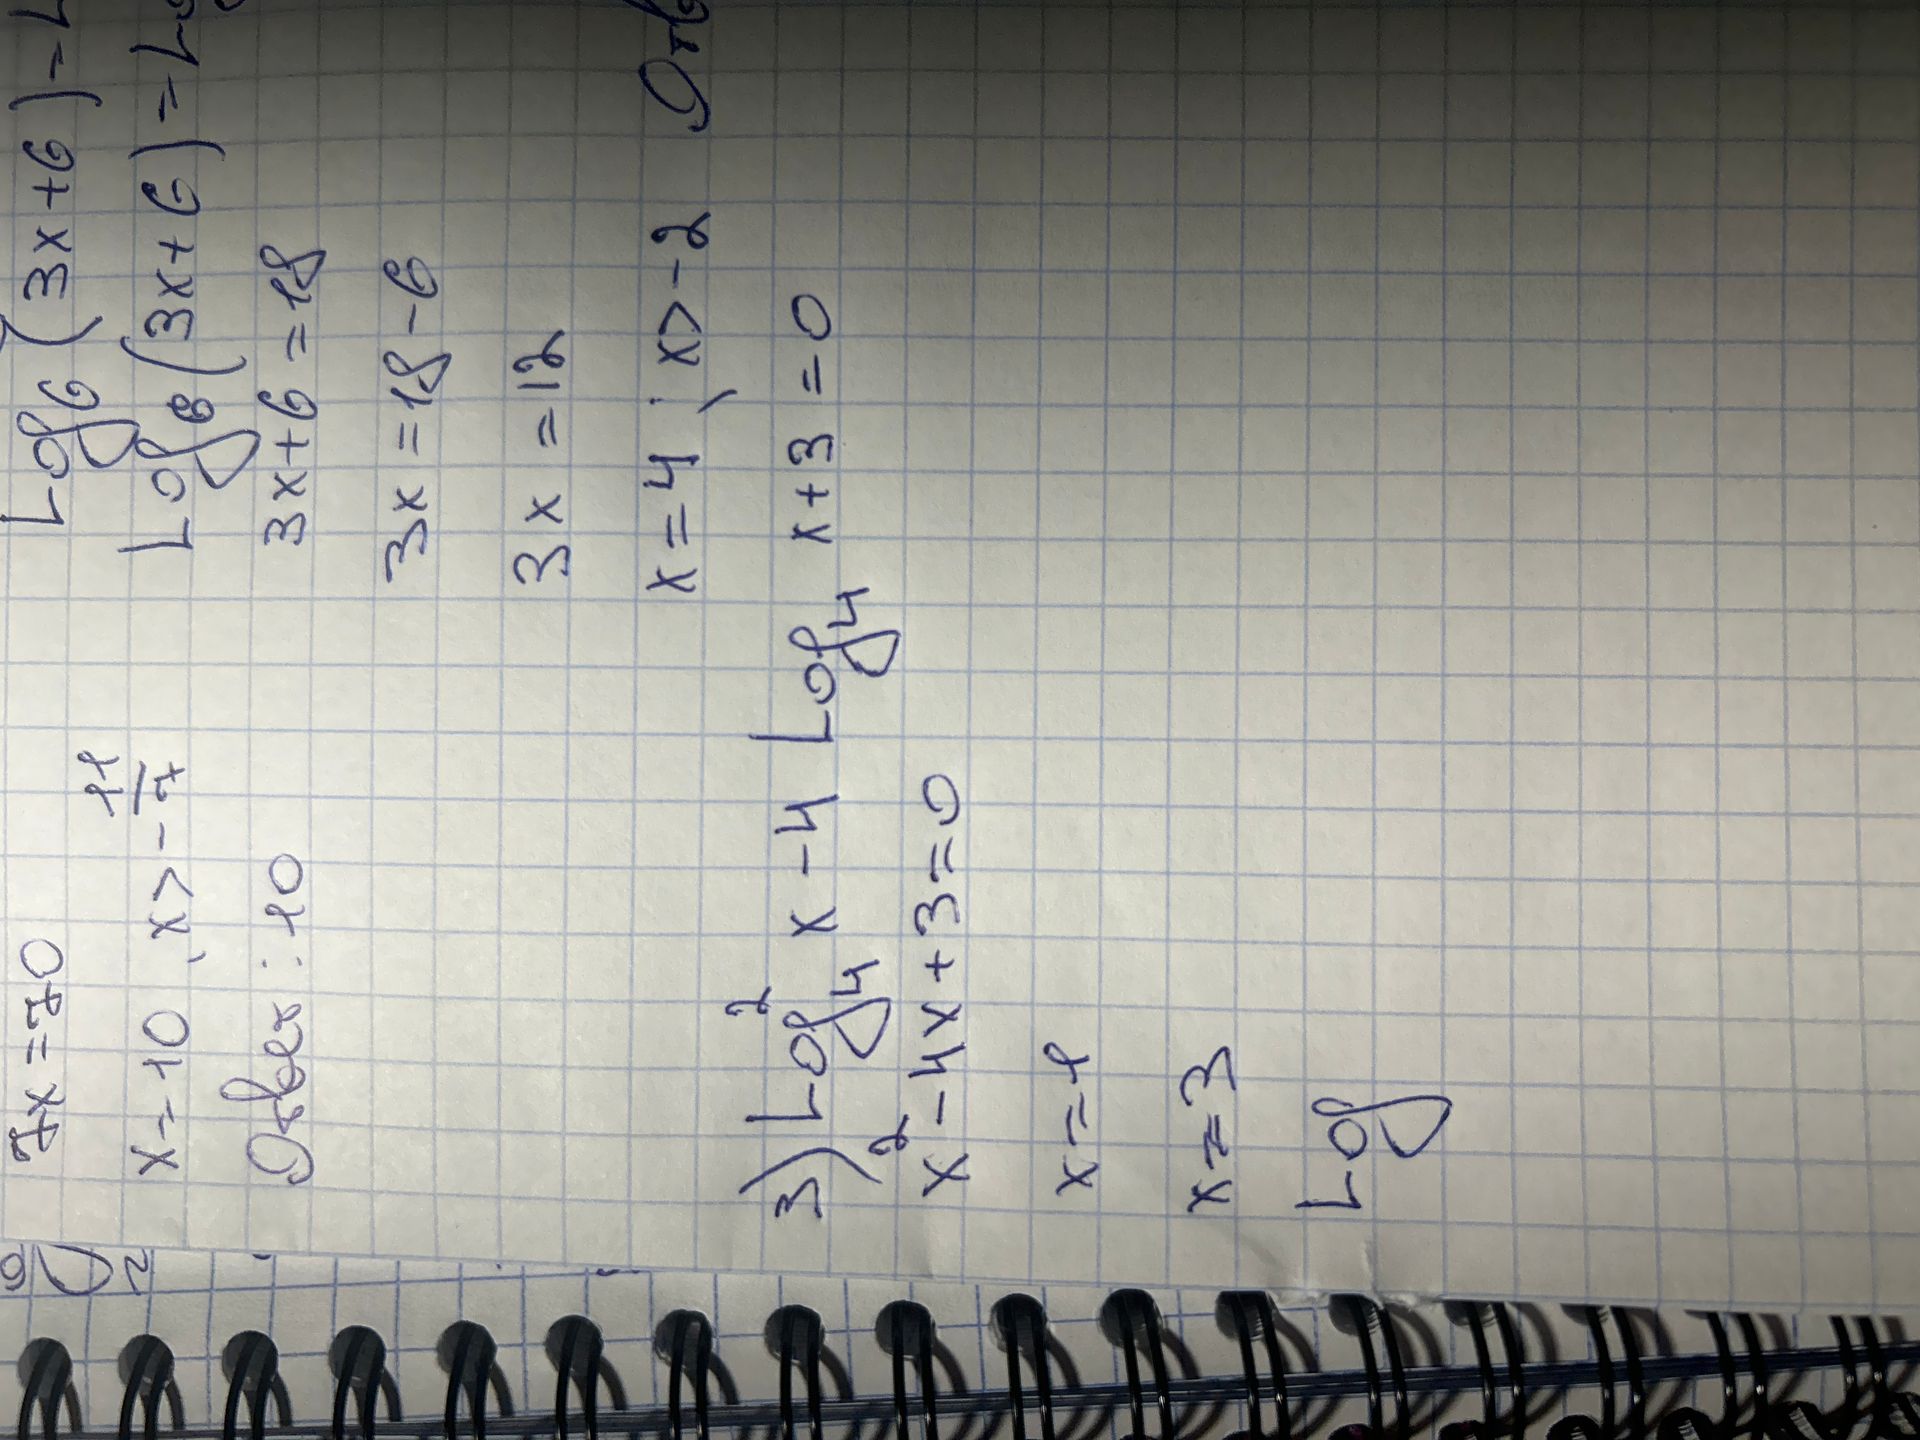 7x = 70
x = 10, x > -11/7
Ответ: 10
Log₆(3x+6) - L
Log₆(3x+6) = Lo
3x+6 = 18
3x = 18 - 6
3x = 12
x = 4; x > -2
Отв
3) Log²₄ x - 4 Log₄ x + 3 = 0
x² - 4x + 3 = 0
x = 1
x = 3
Log